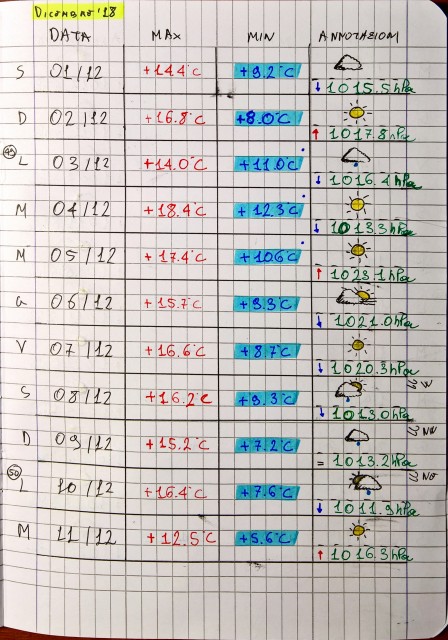 Dicembre '18
DATA MAX MIN ANNOTAZIONI
S 01/12 +14.4°C +9.2°C ↓ 1015.5hPa
D 02/12 +16.8°C +8.0°C ↑ 1017.8hPa
49 L 03/12 +14.0°C +11.0°C ↓ 1016.4hPa
M 04/12 +18.4°C +12.3°C ↓ 1013.3hPa
M 05/12 +17.4°C +10.6°C ↑ 1023.1hPa
G 06/12 +15.7°C ↓ 1021.0hPa
V 07/12 +16.6°C +8.7°C ↓ 1020.3hPa
S 08/12 +16.2°C +9.3°C W ↓ 1013.0hPa
D 09/12 +15.2°C +7.2°C NW = 1013.2hPa
50 L 10/12 +16.4°C +7.6°C NE ↓ 1011.9hPa
M 11/12 +12.5°C +5.6°C ↑ 1016.3hPa